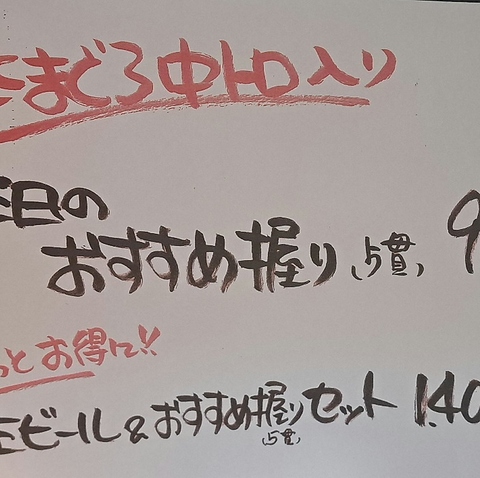 まぐろ中トロ入り
日の
おすすめ握り(5貫) 9
っとお得に!!
生ビール&おすすめ握りセット 1.40
(5貫)